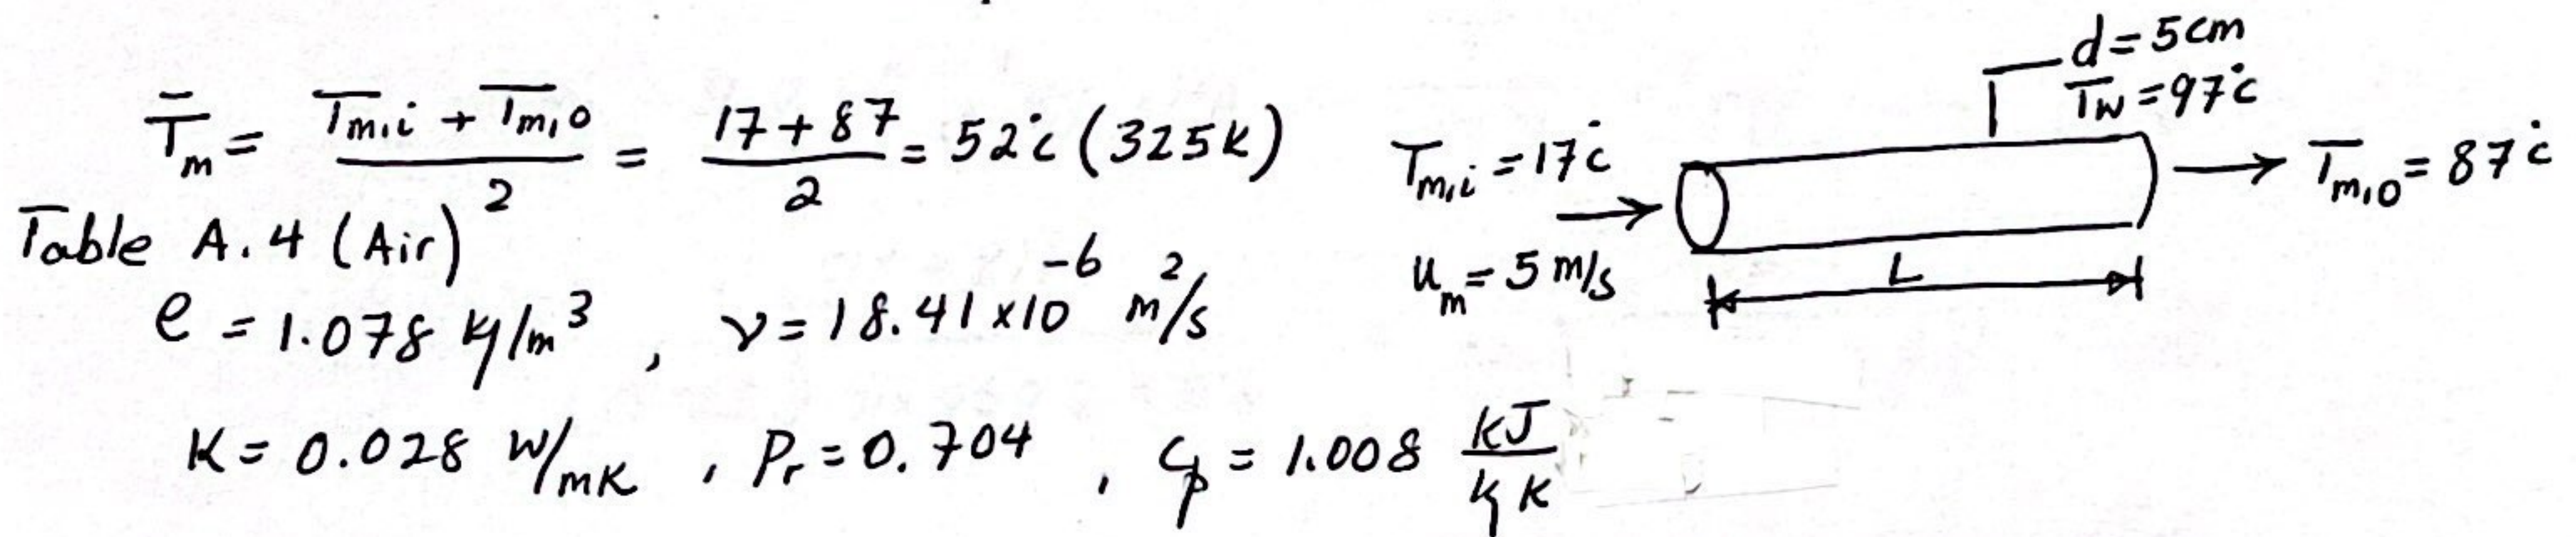 T̄m = (Tm,i + Tm,o)/2 = (17+87)/2 = 52°c (325K)
Table A.4 (Air)
ρ = 1.078 kg/m³ , ν = 18.41 x10⁻⁶ m²/s
K = 0.028 W/mK , Pr = 0.704 , cp = 1.008 kJ/kg K
d = 5cm
Tw = 97°c
Tm,i = 17°c
um = 5 m/s
L
Tm,o = 87°c